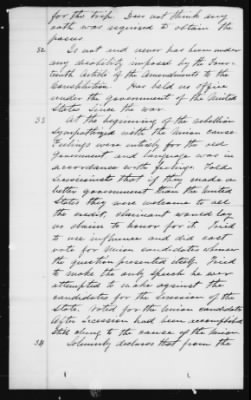 for the trip. Does not think any
oath was required to obtain the
passes
32 Is not and never has been under
any disability imposed by the Four-
teenth Article of the Amendments to the
Constitution. Has held no office
under the government of the United
States since the war.
33 At the beginning of the rebellion
sympathized with the Union cause.
Feelings were entirely for the old
government and language was in
accordance with the feelings. Told
Secessionists that if they made a
better government than the United
States they were welcome to all
the credit, claimant would lay
no claim to honor for it. Tried
to use influence and did cast
vote for Union candidates whenever
the question presented itself. Tried
to make the only speech he ever
attempted to make against the
candidates for the secession of the
State. Voted for the Union candidate
After Secession had been accomplished
still clung to the cause of the Union
34 Solemnly declares that from the